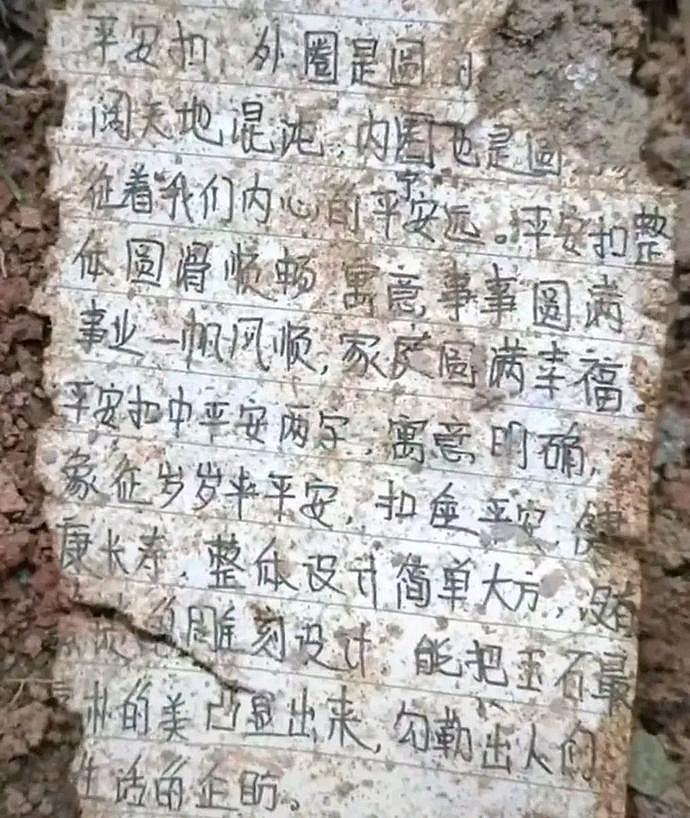 平安扣 外圈是圆的
阔天地混沌,内圈也是圆
征着我们内心的平安远。平安扣整
体圆滑顺畅 寓意事事圆满,
事业一帆风顺,家庭圆满幸福。
平安扣中平安两字,寓意明确,
象征岁岁平安,扣座平安,健
康长寿,整体设计简单大方,没有
雕刻设计 能把玉石最
的美凸显出来,勾勒出人们
生活的企盼。